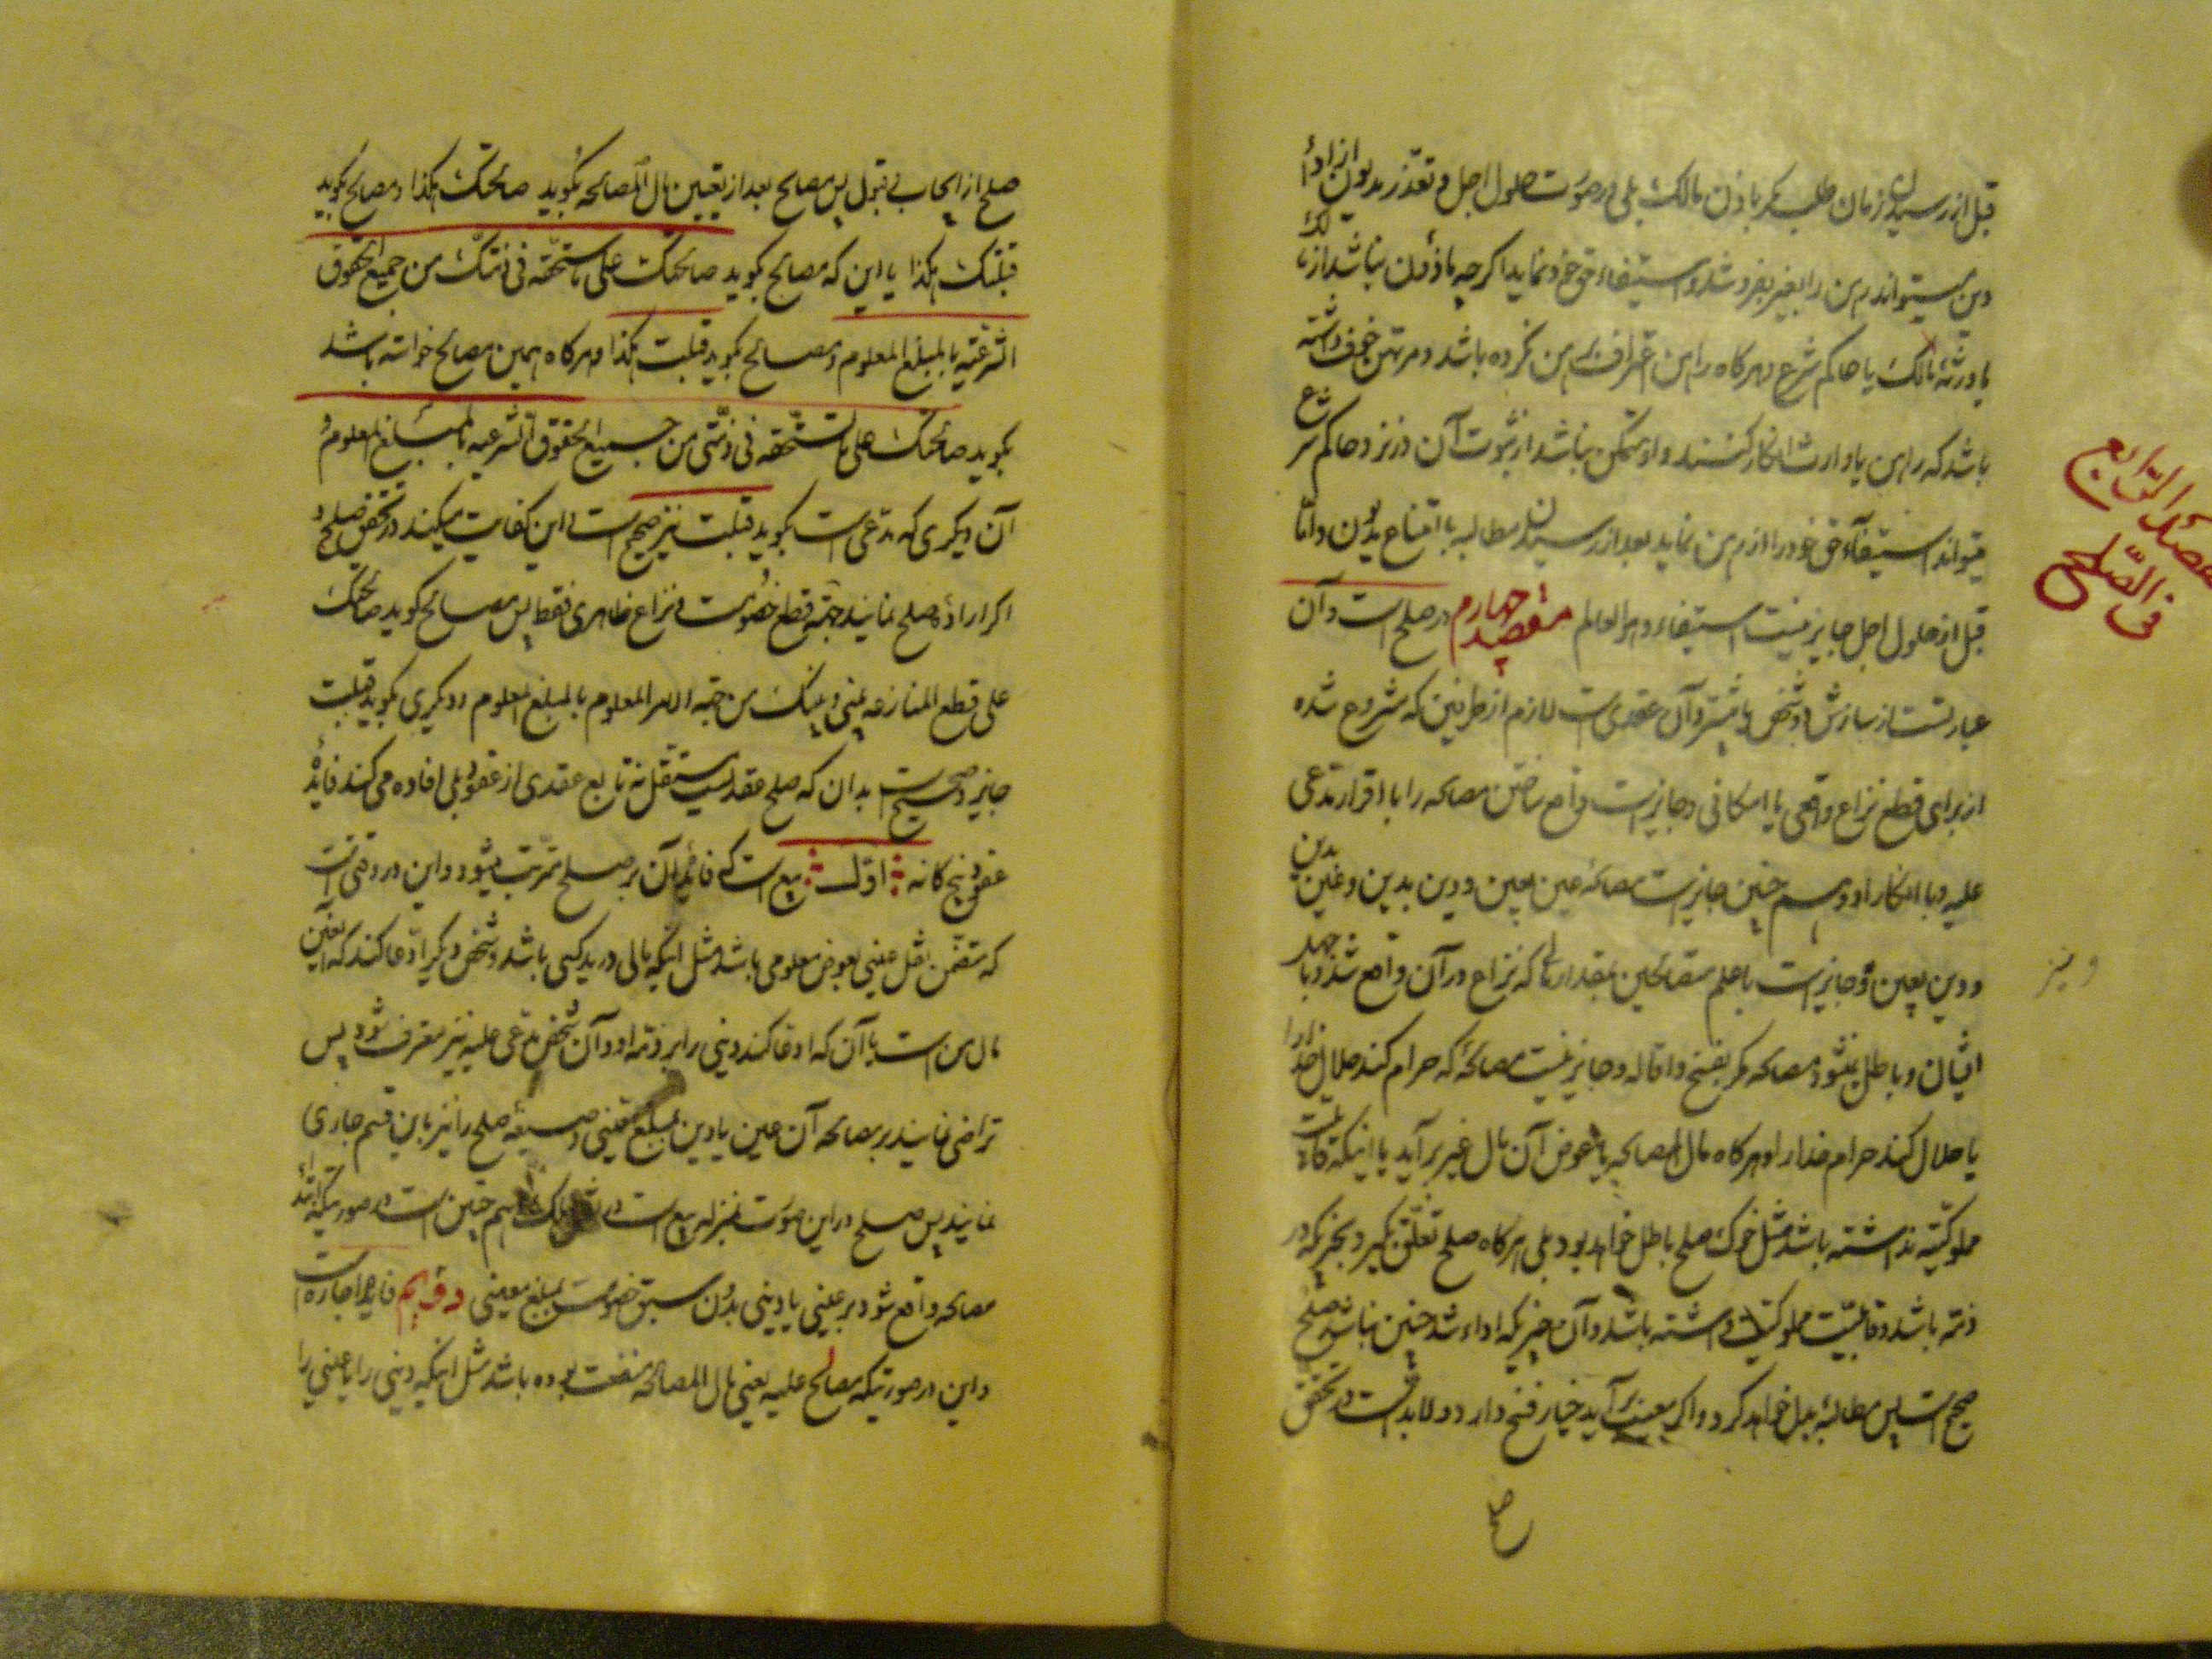 قبل از رسیدن زمان طلب مگر باذن مالک بلی در صورت حلول اجل و تعذر مدیون از اداء
دین میتواند رهن را بغیر بفروشد و استیفاء حق خود نماید اگر چه مأذون نباشد از مالک
یا ورثهٔ مالک یا حاکم شرع و هرگاه راهن اعتراف برهن نکرده باشد و مرتهن خوف داشته
باشد که راهن یا وارث انکار کنند و او متمکن نباشد از ثبوت آن در نزد حاکم شرع
میتواند استیفاء حق خود را از رهن نماید بعد از رسیدن مطالبه با امتناع مدیون و اما
قبل از حلول اجل جایز نیست استیفاء و هو العالم مقصد چهارم در صلح است و آن
عبارتست از سازش دو شخص یا بیشتر و آن عقدیست لازم از طرفین که مشروع شده
از برای قطع نزاع واقعی یا امکانی و جایز است واقع ساختن مصالحه را با اقرار مدعی
علیه و با انکار او و همچنین جایز است مصالحهٔ عین بعین و دین بدین و عین بدین
و دین بعین و جایز است با علم متصالحین بمقدار مالی که نزاع در آن واقع شده و با جهل
ایشان و باطل نمیشود مصالحه مگر بفسخ و اقاله و جایز نیست مصالحهٔ که حرام کند حلال خدا را
یا حلال کند حرام خدا را و هرگاه مال المصالحه یا عوض آن مال غیر برآید یا اینکه قابلیت
مملوکیته نداشته باشد مثل خوک صلح باطل خواهد بود بلی هرگاه صلح تعلق گیرد بچیزیکه در
ذمه باشد و قابلیت مملوکیت داشته باشد و آن چیزیکه اداء شد چنین نباشد صلح
صحیح است پس مطالبهٔ بدل خواهد کرد و اگر معیب برآید خیار فسخ دارد و لابد است در تحقق
المقصد الرابع
فی الصلح
و نیز
صلح از ایجاب و قبول پس مصالح بعد از تعیین مال المصالحه بگوید صالحتک بکذا و مصالح بگوید
قبلتک بکذا یا این که مصالح بگوید صالحتک علی ما تستحقه فی ذمتک من جمیع الحقوق
الشرعیه بالمبلغ المعلوم و مصالح بگوید قبلت بکذا و هرگاه همین مصالح خواسته باشد
بگوید صالحتک علی ما تستحقه فی ذمتی من جمیع الحقوق الشرعیه بالمبلغ المعلوم و
آن دیگری که مدعی است بگوید قبلت نیز صحیح است و این کفایت میکند در تحقق صلح و
اگر اراده صلح نمایند جهة قطع خصومت و نزاع ظاهری فقط پس مصالح گوید صالحتک
علی قطع المنازعه بینی و بینک من جهة الامر المعلوم بالمبلغ المعلوم و دیگری بگوید قبلت
جایز و صحیح است بدان که صلح عقدیست مستقل نه تابع عقدی از عقود بلی افاده می کند فایدهٔ
عقود پنج کانه اول بیع است که فایدهٔ آن بر صلح مترتب میشود و این در وقتی است
که متضمن نقل عینی بعوض معلومی باشد مثل اینکه مالی در ید کسی باشد و شخص دیگر ادعا کند که این عین
مال من است یا آن که ادعا کند دینی را بر ذمه او و آن شخص مدعی علیه نیز معترف شود پس
تراضی نمایند بر مصالحه آن عین یا دین بمبلغ معینی و صیغهٔ صلح را نیز باین قسم جاری
نمایند پس صلح در این صورت بمنزله بیع است در همچنین است در صورتیکه ابتداءً
مصالحه واقع شود بر عینی یا دینی بدون سبق خصومت بمبلغ معینی دویم فایدهٔ اجاره است
و این در صورتیکه مصالح علیه یعنی مال المصالحه منفعت بوده باشد مثل اینکه دینی را یا عینی را